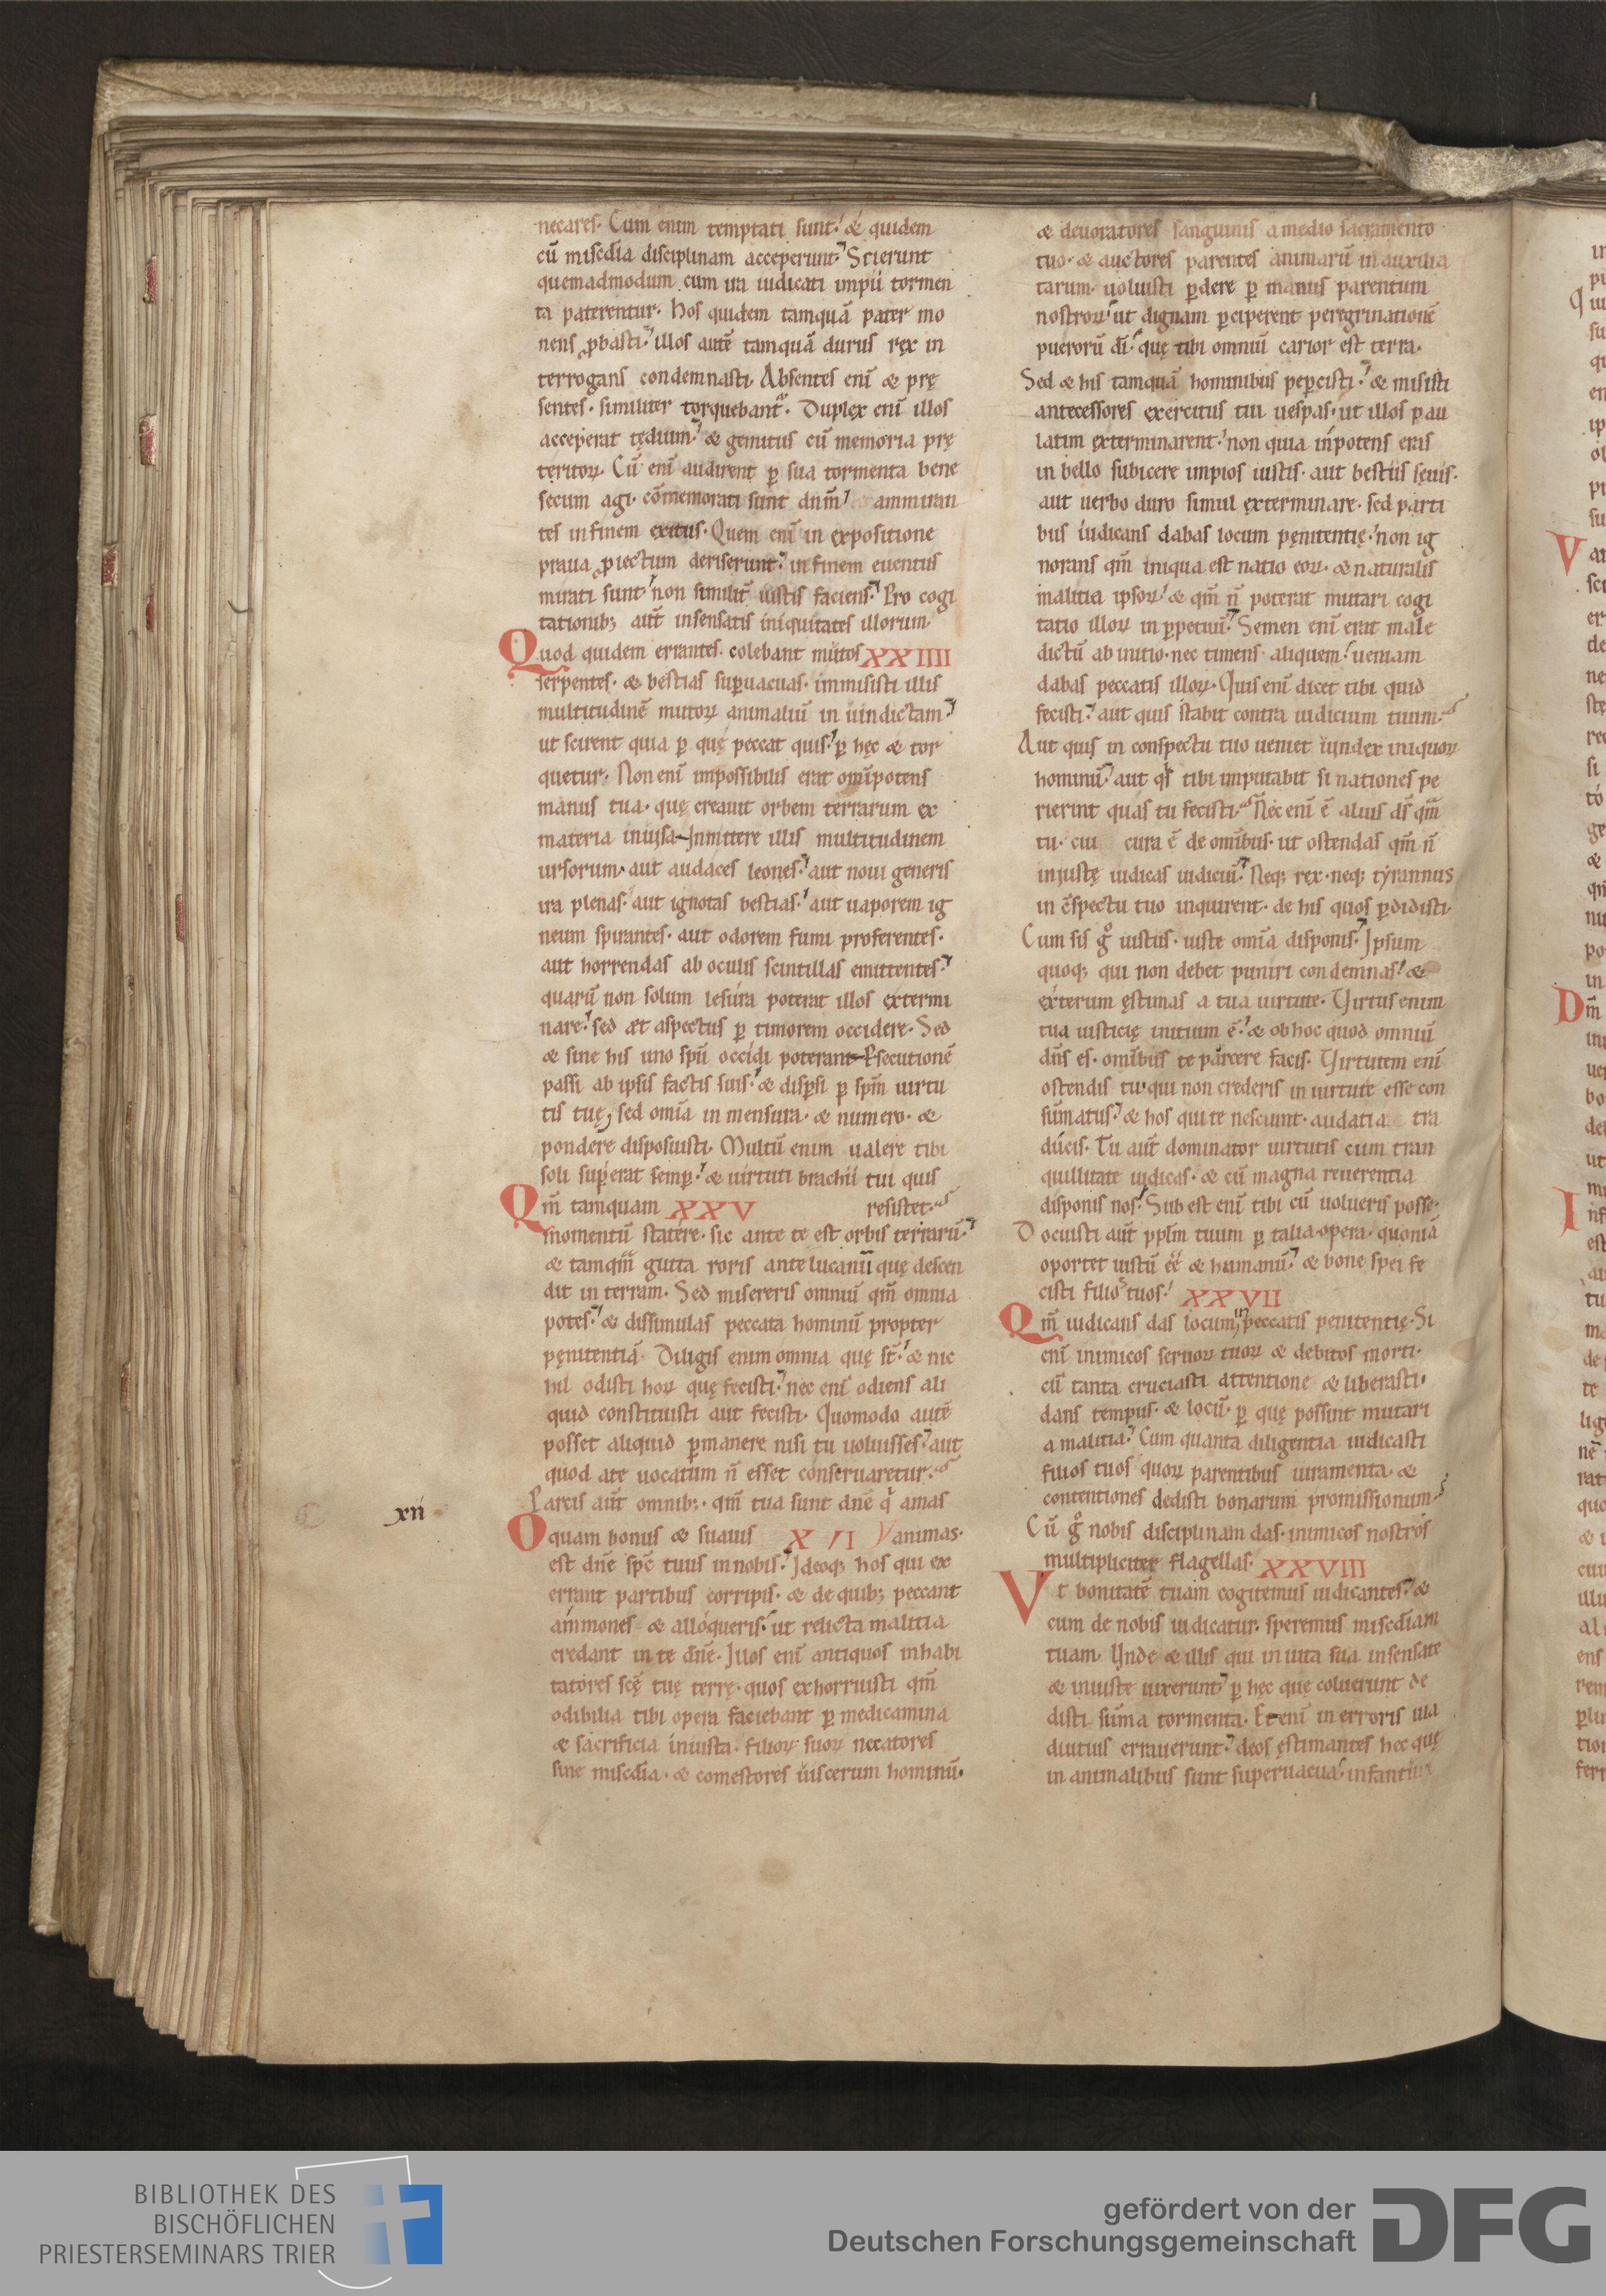 necares. Cum enim temptati sunt. & quidem
cū misc̄dia disciplinam acceperunt. Scierunt
quemadmodum cum ira iudicati impii tormen
ta paterentur. Hos quidem tamquā pater mo
nens ꝓbasti. illos autē tamquā durus rex in
terrogans condemnasti. Absentes enī & prę
sentes. similiter torquebant᷑. Duplex enī illos
acceperat tędium. & gemitus cū memoria prę
teritoꝝ. Cū enī audirent ꝑ sua tormenta bene
secum agi. cōmemorati sunt dnm̄ ammiran
tes in finem exitus. Quem enī in expositione
praua ꝓiectum deriserunt. in finem euentus
mirati sunt. non similit᷑ iustis faciens. Pro cogi
tationib; aut̄ insensatis iniquitates illorum
Quod quidem errantes. colebant mutos XXIIII
serpentes. & bestias suꝑuacuas. immisisti illis
multitudinē mutoꝝ animaliū in uindictam.
ut scirent quia ꝑ quę peccat quis. ꝑ hęc & tor
quetur. Non enī impossibilis erat om̄ipotens
manus tua. quę creauit orbem terrarum ex
materia inuisa. Inmittere illis multitudinem
ursorum. aut audaces leones. aut noui generis
ira plenas. aut ignotas bestias. aut uaporem ig
neum spirantes. aut odorem fumi proferentes.
aut horrendas ab oculis scintillas emittentes.
quarū non solum lesura poterat illos extermi
nare. sed æt aspectus ꝑ timorem occidere. Sed
& sine his uno spū occidi poterant. Psecutionē
passi ab ipsis factis suis. & disꝑsi ꝑ spm̄ uirtu
tis tuę, sed omīa in mensura. & numero. &
pondere disposuisti. Multū enim ualere tibi
soli superat semꝑ. & uirtuti brachii tui quis
Qm̄ tamquam XXV resistet.
momentū statere. sic ante te est orbis terrarū.
& tamqm̄ gutta roris antelucanū quę descen
dit in terram. Sed misereris omniū qm̄ omnia
potes. & dissimulas peccata hominū propter
pęnitentiā. Diligis enim omnia quę st̄. & nic
hil odisti hoꝝ quę fecisti. nec enī odiens ali
quid constituisti aut fecisti. Quomodo autē
posset aliquid ꝑmanere nisi tu uoluisses. aut
quod ate uocatum n̄ esset conseruaretur.
Parcis aut̄ omnib;. qm̄ tua sunt dnē q̇ amas
xii
O quam bonus & suauis X VI animas.
est dnē spc̄ tuus in nobis. Ideoq; hos qui ex
errant partibus corripis. & de quib; peccant
ammones & alloqueris. ut relicta malitia
credant in te dnē. Illos enī antiquos inhabi
tatores scę̄ tuę terrę. quos exhorruisti qm̄
odibilia tibi opera faciebant ꝑ medicamina
& sacrificia iniusta. filioꝝ suoꝝ necatores
sine misc̄dia. & comestores uiscerum hominū.
& deuoratores sanguinis a medio sacramento
tuo. & auctores parentes animarū inauxilia
tarum. uoluisti ꝑdere ꝑ manus parentum
nostroꝝ. ut dignam ꝑciperent peregrinationē
puerorū dī. quę tibi omniū carior est terra.
Sed & his tamquā hominibus pepercisti. & misisti
antecessores exercitus tui uespas. ut illos pau
latim exterminarent. non quia inpotens eras
in bello subicere impios iustis. aut bestiis sęuis.
aut uerbo duro simul exterminare. sed parti
bus iudicans dabas locum pęnitentię. non ig
norans qm̄ iniqua est natio eoꝝ. & naturalis
malitia ipsoꝝ. & qm̄ n̄ poterat mutari cogi
tatio illoꝝ in ꝑpetuū. Semen enī erat male
dictū ab initio. nec timens aliquem. ueniam
dabas peccatis illoꝝ. Quis enī dicet tibi quid
fecisti. aut quis stabit contra iudicium tuum.
Aut quis in conspectu tuo ueniet uindex iniquoꝝ
hominū. aut qͥs tibi imputabit si nationes pe
rierint quas tu fecisti. Nec enī ē alius ds̄ qm̄
tu. cui cura ē de omībus. ut ostendas qm̄ n̄
iniustę iudicas iudiciū. Neq; rex. neq; tyrannus
in c̄spectu tuo inquirent. de his quos ꝑdidisti.
Cum sis gͦ iustus. iuste omīa disponis. Ipsum
quoq; qui non debet puniri condemnas. &
exterum ęstimas a tua uirtute. Virtus enim
tua iusticię initium ē. & ob hoc quod omniū
dns̄ es. omībus te parcere facis. Virtutem enī
ostendis tu. qui non crederis in uirtute esse con
sūmatus. & hos qui te nesciunt. audatia tra
ducis. Tu aut̄ dominator uirtutis cum tran
quillitate iudicas. & cū magna reuerentia
disponis nos. Sub est enī tibi cū uolueris posse.
Docuisti aut̄ pplm̄ tuum ꝑ talia opera. quoniā
oportet iustū eē & humanū. & bone spei fe
cisti filios tuos. XXVII
Qm̄ iudicans das locum in peccatis penitentię. Si
enī inimicos seruoꝝ tuoꝝ & debitos morti.
cū tanta cruciasti attentione & liberasti.
dans tempus. & locū. ꝑ quę possint mutari
a malitia. Cum quanta diligentia iudicasti
filios tuos quoꝝ parentibus iuramenta. &
contentiones dedisti bonarum promissionum.
Cū gͦ nobis disciplinam das. inimicos nostros
multipliciter flagellas. XXVIII
Vt bonitatē tuam cogitemus iudicantes. &
cum de nobis iudicatur. speremus misc̄diam
tuam. Unde & illis qui in uita sua insensate
& iniuste uixerunt. ꝑ hęc quę coluerunt de
disti sūma tormenta. Etenī in erroris uia
diutius errauerunt. deos ęstimantes hec quę
in animalibus sunt superuacua. infantium
BIBLIOTHEK DES
BISCHÖFLICHEN
PRIESTERSEMINARS TRIER
gefördert von der
Deutschen Forschungsgemeinschaft
DFG